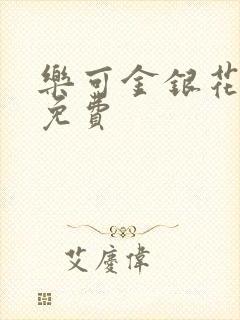 樂可金銀花
免費
艾慶偉